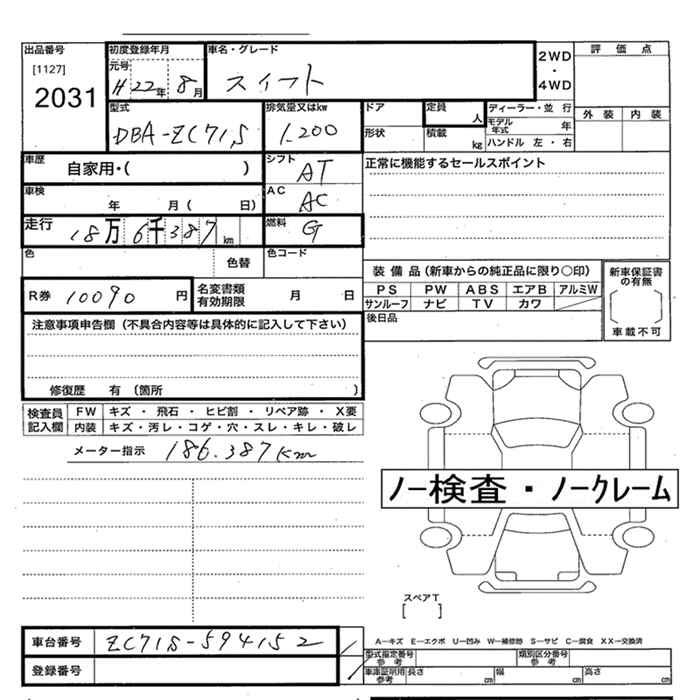 出品番号
[1127]
2031
初度登録年月
元号
H 22年 8月
車名・グレード
スイフト
2WD
・
4WD
評価点
外装 内装
型式
DBA-ZC71S
排気量又はkw
1.200
ドア
形状
定員
人
積載
kg
ディーラー・並行
モデル年式 年
ハンドル 左・右
車歴
自家用・( )
シフト
AT
正常に機能するセールスポイント
車検
年 月 ( 日)
AC
AC
走行
18万6千387km
燃料
G
色
色替
色コード
R券 10090 円
名変書類
有効期限
月 日
装備品(新車からの純正品に限り○印)
PS PW ABS エアB アルミW
サンルーフ ナビ TV カワ
新車保証書
の有無
車載不可
後日品
注意事項申告欄(不具合内容等は具体的に記入して下さい)
修復歴 有 (箇所 )
検査員
記入欄
FW キズ・飛石・ヒビ割・リペア跡・X要
内装 キズ・汚レ・コゲ・穴・スレ・キレ・破レ
メーター指示 186.387Km
ノー検査・ノークレーム
スペアT
[ ]
車台番号 ZC71S-594152
登録番号
A−キズ E−エクボ U−凹み W−補修跡 S−サビ C−腐食 XX−交換済
型式指定番号
参考
類別区分番号
参考
車庫証明用
参考
長さ cm 幅 cm 高さ cm